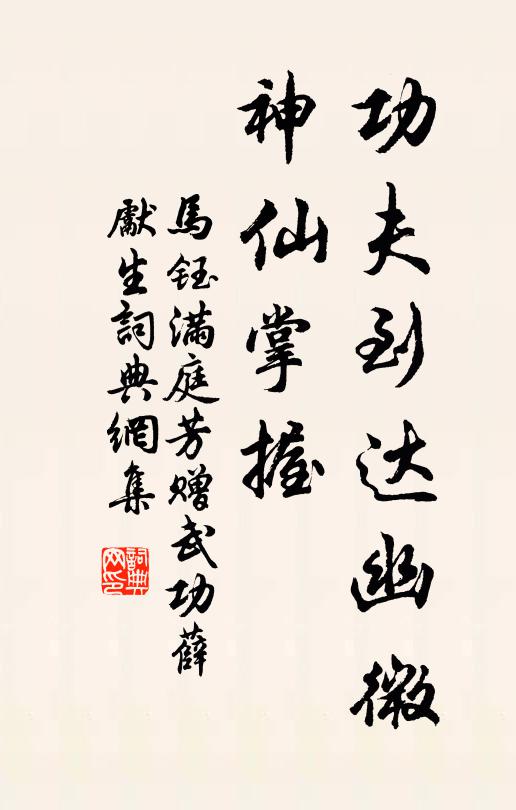 功夫到达幽微
神仙掌握
馬鈺满庭芳赠武功薛
獻生詞典網集
詞典网印